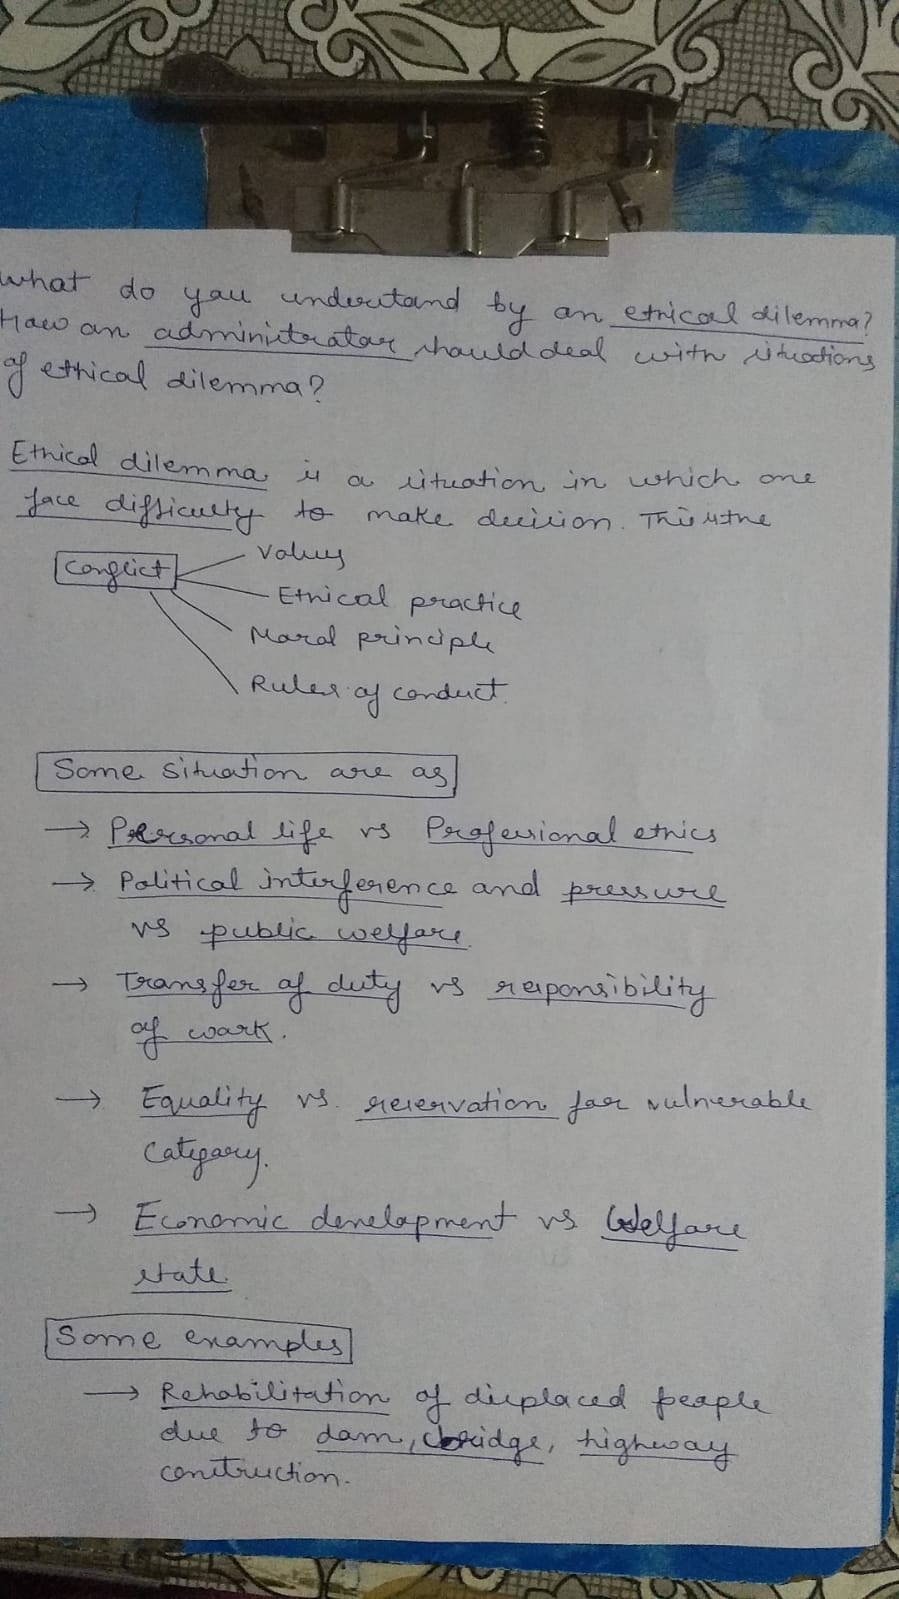 What do you understand by an ethical dilemma?
How an administrator should deal with situations
of ethical dilemma?
Ethical dilemma is a situation in which one
face difficulty to make decision. This is the
Conflict
Values
Ethical practice
Moral principle
Rules of conduct.
Some situation are as
→ Personal life vs Professional ethics
→ Political interference and pressure
vs public welfare.
→ Transfer of duty vs responsibility
of work.
→ Equality vs. reservation for vulnerable
category.
→ Economic development vs Welfare
state.
Some examples
→ Rehabilitation of displaced people
due to dam, bridge, highway
construction.